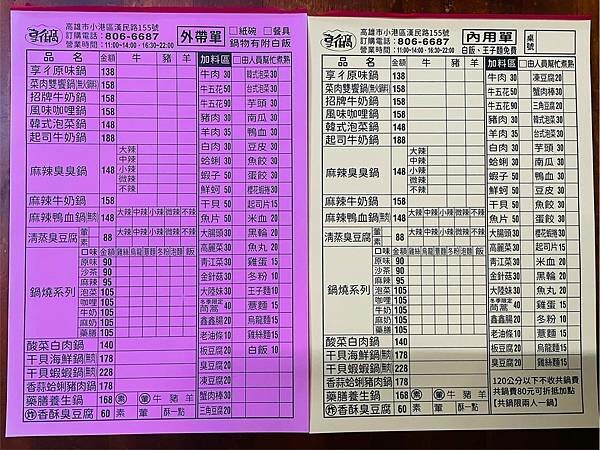 享ㄔ鍋
高雄市小港區漢民路155號
訂購電話：806-6687
營業時間：11:00~14:00・16:30~22:00
外帶單
□紙碗 □餐具
鍋物有附白飯
品名 金額 牛 豬 羊
享ㄔ原味鍋 138
菜肉雙饗鍋 158
招牌牛奶鍋 148
風味咖哩鍋 148
韓式泡菜鍋 148
起司牛奶鍋 148
麻辣臭臭鍋 148
大辣
中辣
小辣
微辣
不辣
麻辣牛奶鍋 158
麻辣鴨血鍋 148 大辣 中辣 小辣 微辣 不辣
清蒸臭豆腐 葷 素 88 大辣 中辣 小辣 微辣 不辣
鍋燒系列
口味 金額 雞絲 烏龍 意麵 冬粉 泡麵 飯
原味 90
沙茶 90
麻辣 95
泡菜 105
咖哩 105
牛奶 105
麻奶 105
藥膳 105
酸菜白肉鍋 140
干貝海鮮鍋 178
干貝蝦蝦鍋 228
香蒜蛤蜊豬肉鍋 178
藥膳養生鍋 168 素 葷 牛 豬 羊
炸 香酥臭豆腐 60 素 葷 酥一點
加料區 □由人員幫忙煮熟
牛肉 30 韓式泡菜 30
牛五花 50 台式泡菜 30
牛五花 90 芋頭 30
豬肉 30 南瓜 30
羊肉 35 鴨血 30
白肉 30 豆皮 30
蛤蜊 30 魚餃 30
蝦子 50 蛋餃 30
鮮蚵 50 櫻花蝦捲 30
干貝 50 起司片 15
魚片 50 米血 20
大腸頭 30 黑輪 20
高麗菜 30 魚丸 20
青江菜 30 雞蛋 15
金針菇 30 冬粉 10
大陸妹 30 王子麵 10
冬季限定 茼蒿 40 意麵 15
鑫鑫腸 20 烏龍麵 15
老油條 10 雞絲麵 15
板豆腐 20 白飯 10
豆腐皮 20
凍豆腐 20
蟹肉棒 30
三角豆腐 20
享ㄔ鍋
高雄市小港區漢民路155號
訂購電話：806-6687
營業時間：11:00~14:00・16:30~22:00
內用單
白飯、王子麵免費
桌號
品名 金額 牛 豬 羊
享ㄔ原味鍋 138
菜肉雙饗鍋 158
招牌牛奶鍋 148
風味咖哩鍋 148
韓式泡菜鍋 148
起司牛奶鍋 148
麻辣臭臭鍋 148
大辣
中辣
小辣
微辣
不辣
麻辣牛奶鍋 158
麻辣鴨血鍋 148 大辣 中辣 小辣 微辣 不辣
清蒸臭豆腐 葷 素 88 大辣 中辣 小辣 微辣 不辣
鍋燒系列
口味 金額 雞絲 烏龍 意麵 冬粉 泡麵 飯
原味 90
沙茶 90
麻辣 95
泡菜 105
咖哩 105
牛奶 105
麻奶 105
藥膳 105
酸菜白肉鍋 140
干貝海鮮鍋 178
干貝蝦蝦鍋 228
香蒜蛤蜊豬肉鍋 178
藥膳養生鍋 168 素 葷 牛 豬 羊
炸 香酥臭豆腐 60 素 葷 酥一點
加料區 □由人員幫忙煮熟
牛肉 30 凍豆腐 20
牛五花 50 蟹肉棒 30
牛五花 90 三角豆腐 20
豬肉 30 韓式泡菜 30
羊肉 35 台式泡菜 30
白肉 30 芋頭 30
蛤蜊 30 南瓜 30
蝦子 50 鴨血 30
鮮蚵 50 豆皮 30
干貝 50 魚餃 30
魚片 50 蛋餃 30
大腸頭 30 櫻花蝦捲 30
高麗菜 30 起司片 15
青江菜 30 米血 20
金針菇 30 黑輪 20
大陸妹 30 魚丸 20
冬季限定 茼蒿 40 雞蛋 15
鑫鑫腸 20 冬粉 10
老油條 10 意麵 15
板豆腐 20 烏龍麵 15
豆腐皮 20 雞絲麵 15
120公分以下不收共鍋費
共鍋費80元可折抵加點
【共鍋限兩人一鍋】